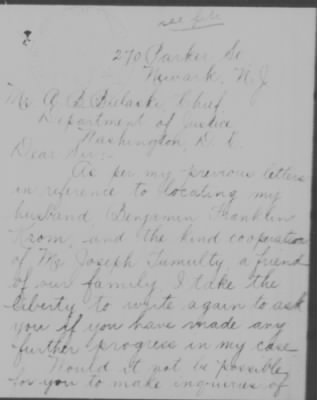 see file
270 Parker St
Newark, N. J
Mr A. B. Bielaski Chief
Department of Justice
Washington, D. C.
Dear Sir:-
As per my previous letters
in reference to locating my
husband Benjamin Franklin
Krom, and the kind cooperation
of Mr Joseph Tumulty, a friend
of our family, I take the
liberty to write again to ask
you if you have made any
further progress in my case
Would it not be possible
for you to make inquiries of